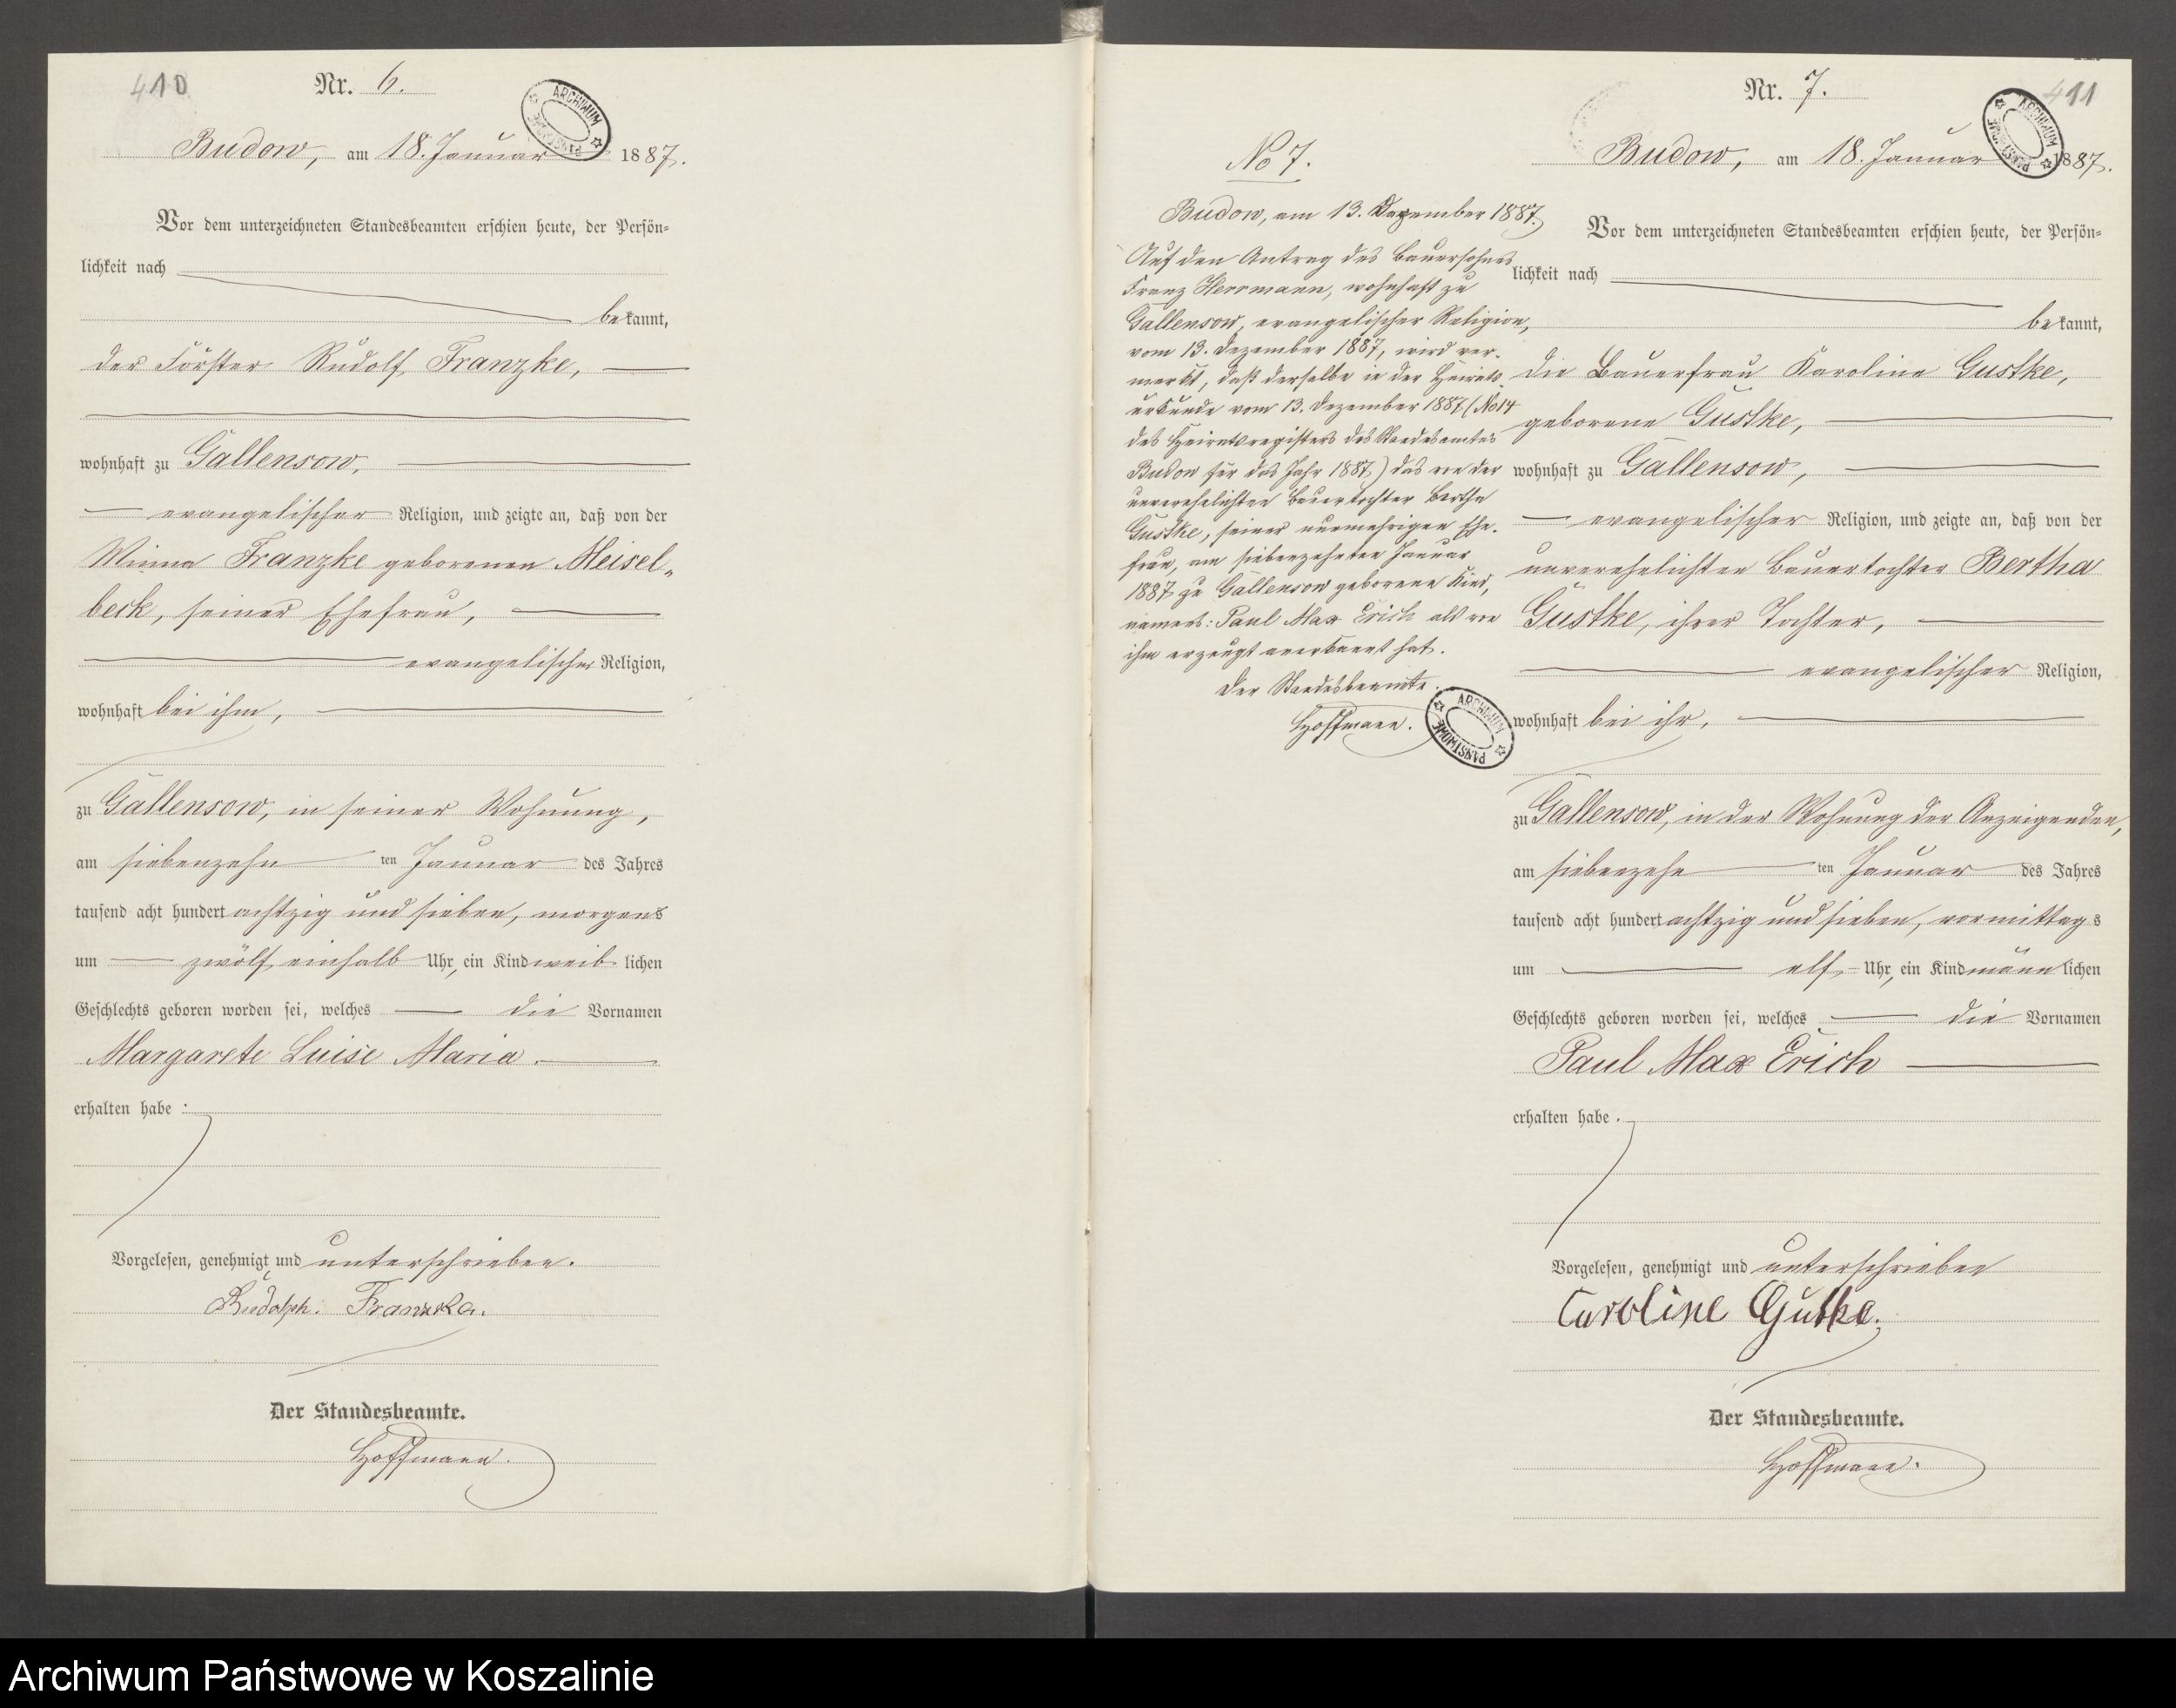 410
Nr. 6.
ARCHIWUM PAŃSTWOWE
Budow, am 18. Januar 1887.
Vor dem unterzeichneten Standesbeamten erschien heute, der Persön-
lichkeit nach
bekannt,
der Förster Rudolf Franzke,
wohnhaft zu Gallensow,
evangelischer Religion, und zeigte an, daß von der
Minna Franzke geborenen Meisel-
beck, seiner Ehefrau,
evangelischer Religion,
wohnhaft bei ihm,
zu Gallensow, in seiner Wohnung,
am siebenzehn ten Januar des Jahres
tausend acht hundert achtzig und sieben, morgens
um zwölf einhalb Uhr, ein Kind weiblichen
Geschlechts geboren worden sei, welches die Vornamen
Margarete Luise Maria.
erhalten habe.
Vorgelesen, genehmigt und unterschrieben.
Rudolph. Franzka.
Der Standesbeamte.
Hoffmann.
No 7.
Budow, am 13. Dezember 1887.
Auf den Antrag des Bauersohnes
Franz Herrmann, wohnhaft zu
Gallensow, evangelischer Religion,
vom 13. Dezember 1887, wird ver-
merkt, daß derselbe in der Heirats-
urkunde vom 13. Dezember 1887 (No 14
des Heiratsregisters des Standesamtes
Budow für das Jahr 1887) das von der
unverehelichten Bauertochter Bertha
Gustke, seiner nunmehrigen Ehe-
frau, am siebenzehnten Januar
1887 zu Gallensow geborene Kind,
namens: Paul Max Erich als von
ihm erzeugt anerkannt hat.
Der Standesbeamte.
Hoffmann.
ARCHIWUM PAŃSTWOWE
Nr. 7.
411
ARCHIWUM PAŃSTWOWE
Budow, am 18. Januar 1887.
Vor dem unterzeichneten Standesbeamten erschien heute, der Persön-
lichkeit nach
bekannt,
die Bauerfrau Karoline Gustke,
geborene Gustke,
wohnhaft zu Gallensow,
evangelischer Religion, und zeigte an, daß von der
unverehelichten Bauertochter Bertha
Gustke, ihrer Tochter,
evangelischer Religion,
wohnhaft bei ihr,
zu Gallensow, in der Wohnung der Anzeigenden,
am siebenzehn ten Januar des Jahres
tausend acht hundert achtzig und sieben, vormittags
um elf Uhr, ein Kind männlichen
Geschlechts geboren worden sei, welches die Vornamen
Paul Max Erich
erhalten habe.
Vorgelesen, genehmigt und unterschrieben
Caroline Gutke.
Der Standesbeamte.
Hoffmann.
Archiwum Państwowe w Koszalinie